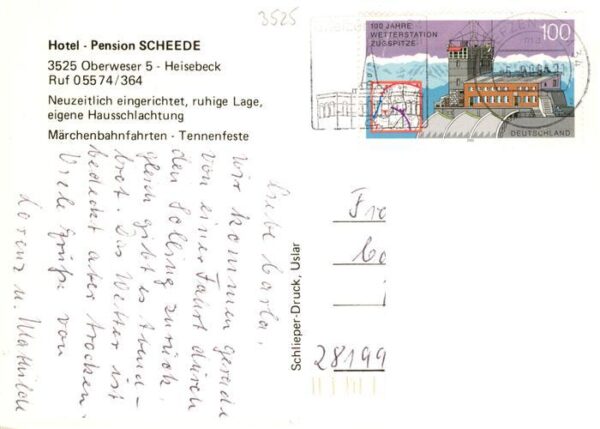 3525
Hotel - Pension SCHEEDE
3525 Oberweser 5 - Heisebeck
Ruf 05574/364
Neuzeitlich eingerichtet, ruhige Lage,
eigene Hausschlachtung
Märchenbahnfahrten - Tennenfeste
100 JAHRE
WETTERSTATION
ZUGSPITZE
100
DEUTSCHLAND
Liebe Carla,
wir kommen gerade
von einer Fahrt durch
den Solling zurück,
gleich gibt es Abend-
brot. Das Wetter ist
bedeckt aber trocken.
Viele Grüße von
Lorenz u. Mathilde
Schlieper-Druck, Uslar
Fr
Ca
28199